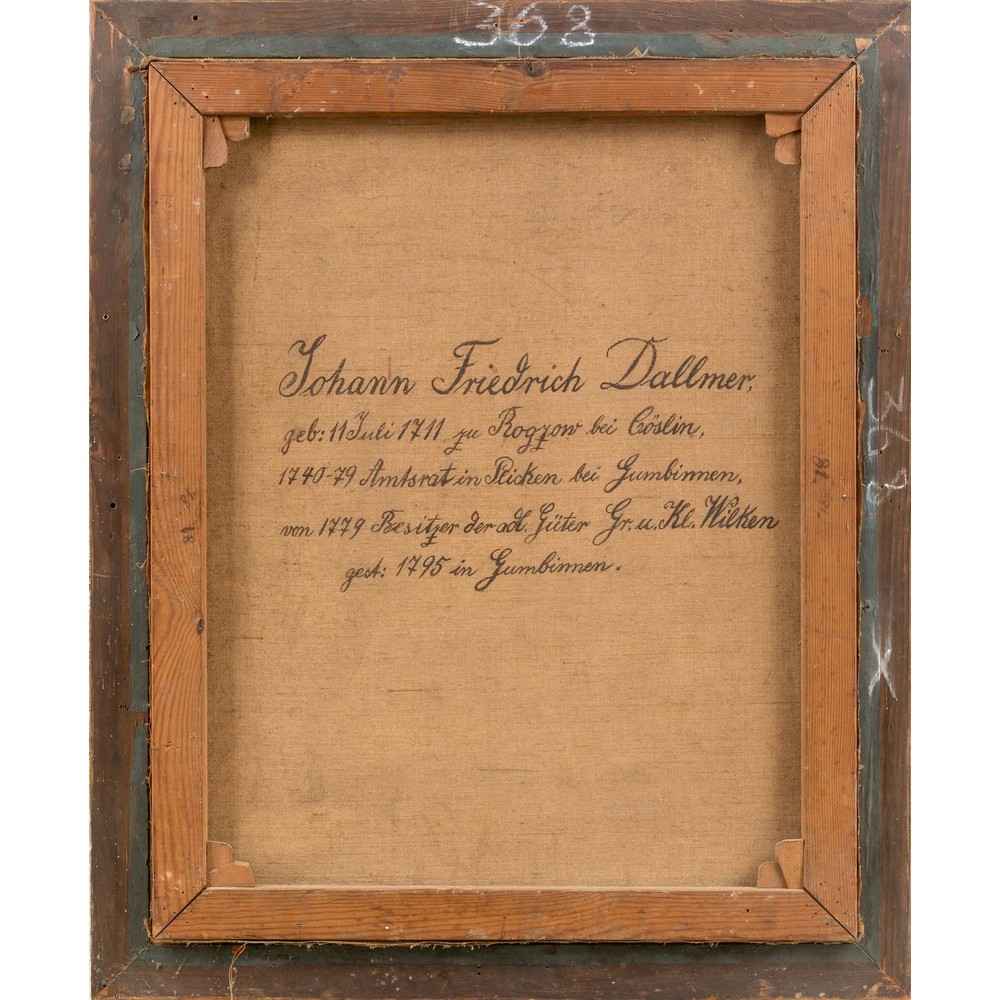 368
Johann Friedrich Dallmer,
geb: 11 Juli 1711 zu Rogzow bei Cöslin,
1740-79 Amtsrat in Plicken bei Gumbinnen,
von 1779 Besitzer der adl. Güter Gr. u. Kl. Wilken
gest: 1795 in Gumbinnen.
368
X
78